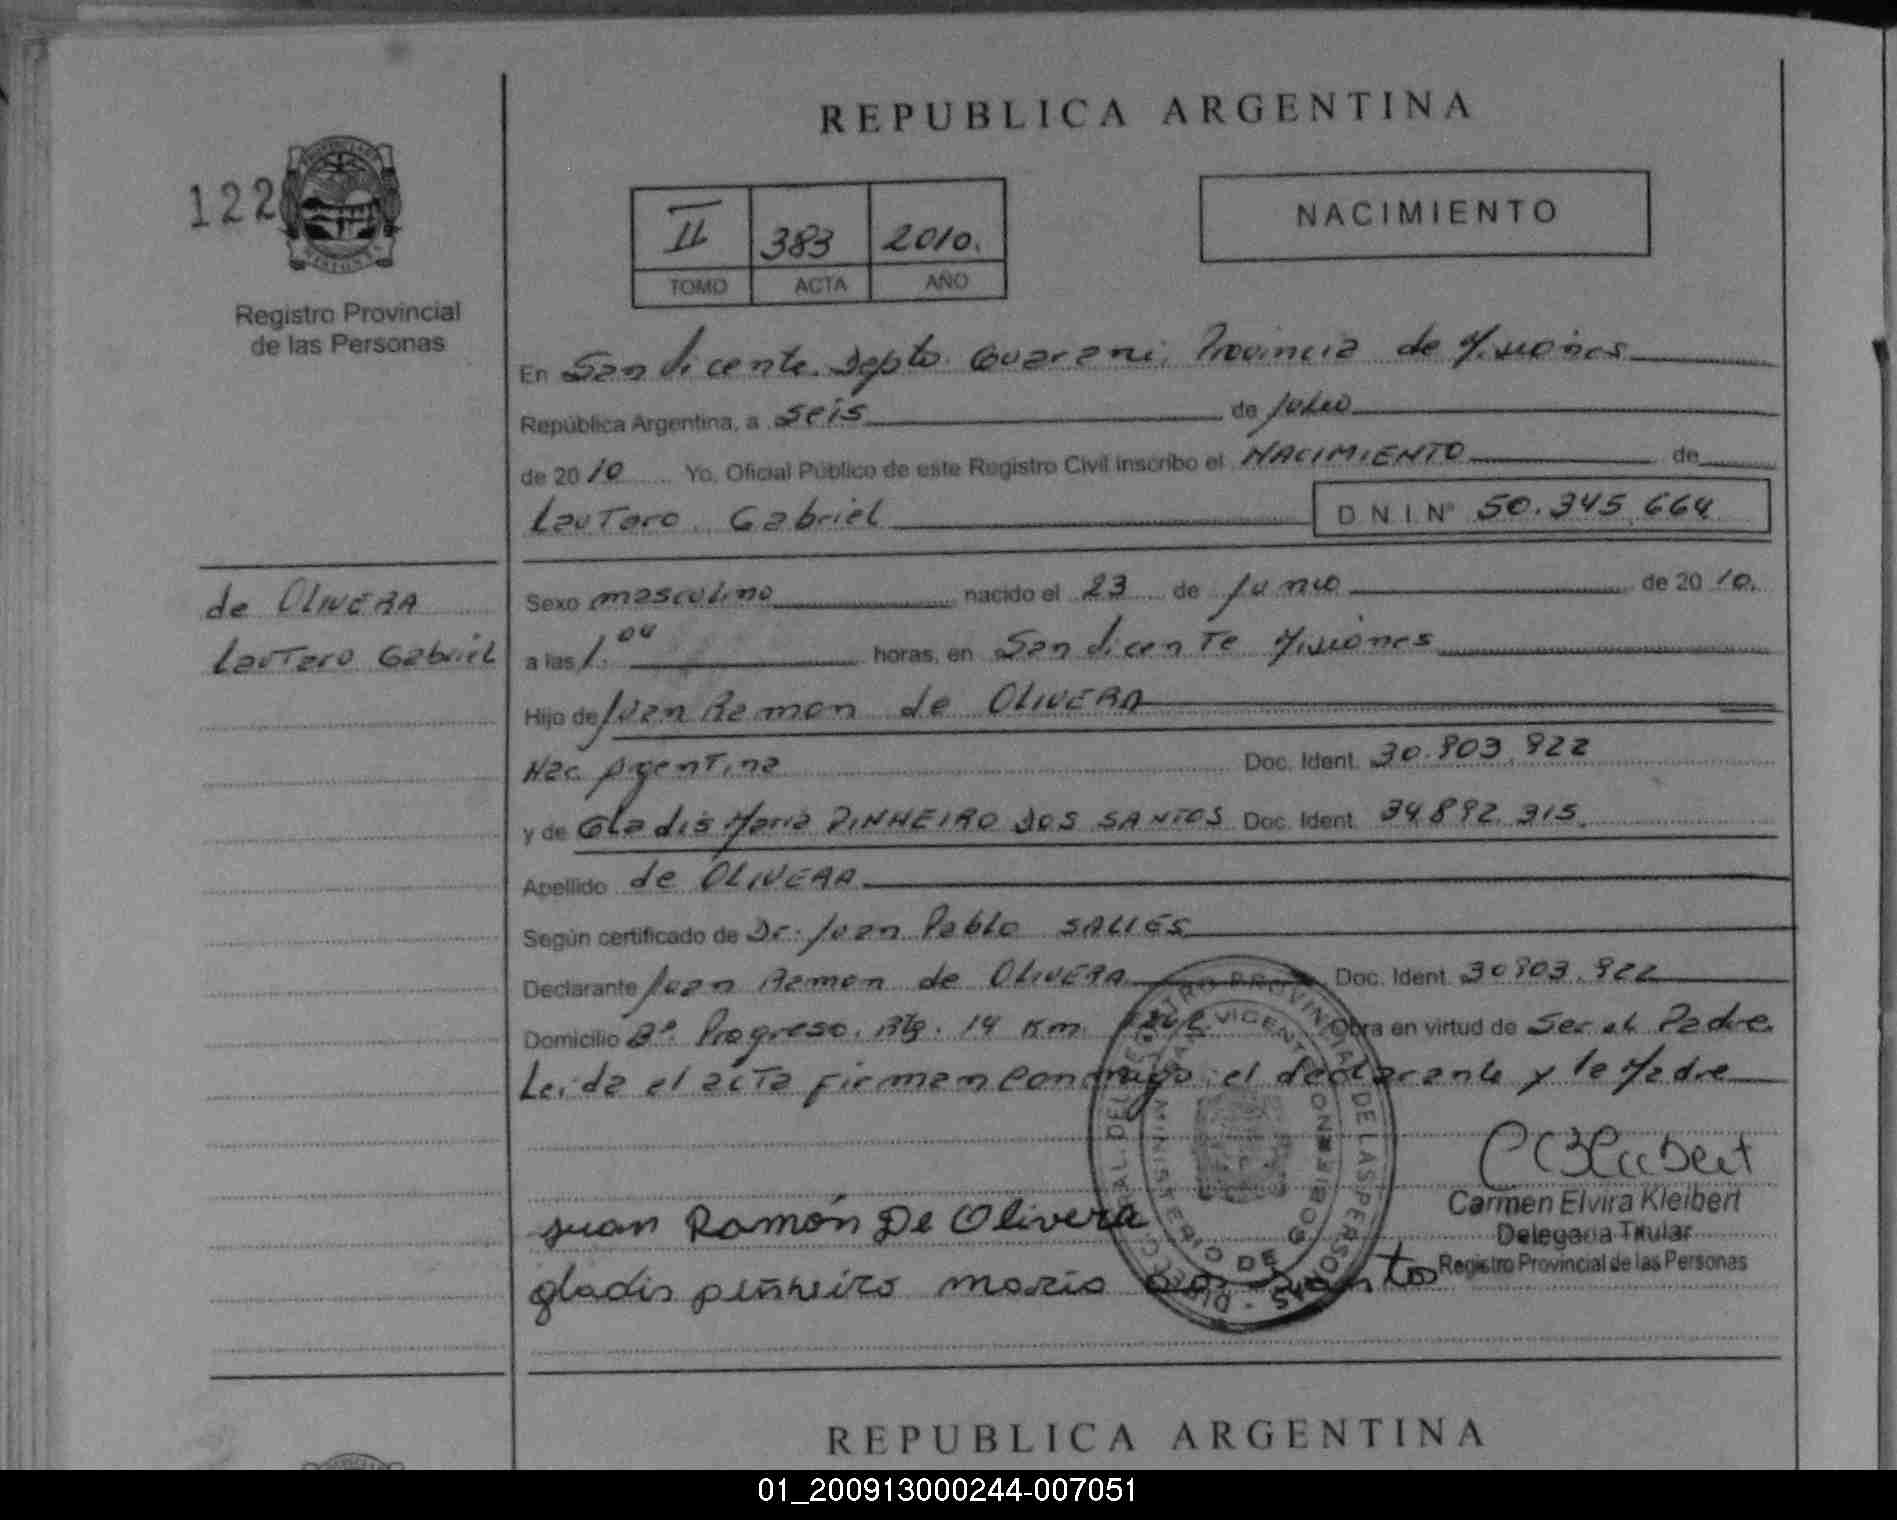 REPUBLICA ARGENTINA
122
II 383 2010.
TOMO ACTA AÑO
NACIMIENTO
Registro Provincial
de las Personas
En San Vicente Depto. Guarani, Provincia de Misiones
República Argentina, a seis de Julio
de 2010 Yo, Oficial Público de este Registro Civil inscribo el NACIMIENTO de
Lautaro Gabriel D N I Nº 50.345.664
de OLIVERA
Lautaro Gabriel
Sexo masculino nacido el 23 de Junio de 2010.
a las 1.04 horas, en San Vicente Misiones
Hijo de Juan Ramon de OLIVERA
Nac Argentina Doc. Ident. 30.903.922
y de Gladis Maria PINHEIRO DOS SANTOS Doc. Ident. 34.892.315.
Apellido de OLIVERA
Según certificado de Dr. Juan Pablo SALLES
Declarante Juan Ramon de OLIVERA Doc. Ident. 30903.922
Domicilio Bº. Progreso. Rta. 14 Km. Obra en virtud de Ser el Padre.
Leida el acta firman conmigo el declarante y la Madre
Juan Ramón De Olivera
gladis piñheiro maria dos Santos
DIREC. GRAL. DEL REGISTRO PROVINCIAL DE LAS PERSONAS
MINISTERIO DE GOBIERNO
SAN VICENTE
Carmen Elvira Kleibert
Delegada Titular
Registro Provincial de las Personas
REPUBLICA ARGENTINA
01_200913000244-007051